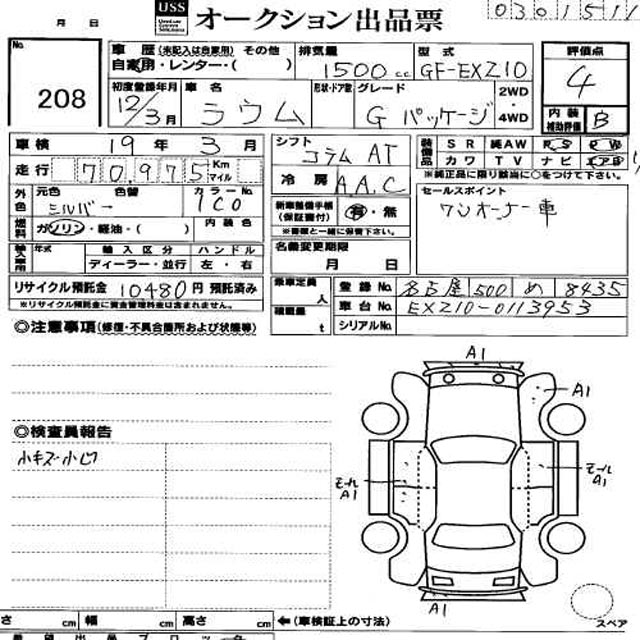 月 日 USS オークション出品票 0301511
No. 208
車歴 (未記入は自家用) その他 自家用・レンター・( )
排気量 1500cc
型式 GF-EXZ10
評価点 4
初度登録年月 12/3月
車名 ラウム
形状・ドア数
グレード G パッケージ
2WD ・4WD
内装補助評価 B
車検 19年 3月
シフト コラム AT
装備品 SR 純AW PS PW
カワ TV ナビ エアB
※純正品に限り該当に○をつけて下さい。
走行 70,975 Km マイル
冷房 A.A.C
セールスポイント
ワンオーナー車
外色 元色 シルバー 色替 カラーNo. 1C0
燃料 ガソリン・軽油・( ) 内装色
新車整備手帳 (保証書付) 有・無
※書類と一緒に保管下さい。
輸入車用 年式 輸入区分 ハンドル
ディーラー・並行 左・右
名義変更期限
月 日
リサイクル預託金 10480円 預託済み
※リサイクル預託金に資金管理料金は含まれません。
乗車定員 人
積載量 t
登録No. 名古屋 500 め 8435
車台No. EXZ10-0113953
シリアルNo.
◎注意事項 (修復・不具合箇所および状態等)
◎検査員報告
小キズ小凹
A1
A1
モール A1
モール A1
A1
スペア
さ cm 幅 cm 高さ cm ←(車検証上の寸法)
希望出品ブロック